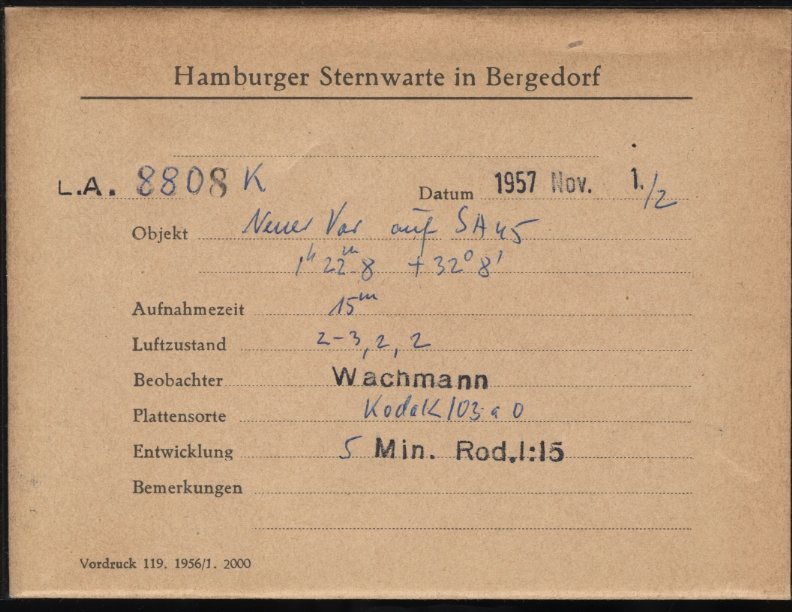 Hamburger Sternwarte in Bergedorf
L.A. 8808 K Datum 1957 Nov. 1./2
Objekt Neuer Var auf SA 45
1h 22m.8 +32° 8'
Aufnahmezeit 15m
Luftzustand 2-3, 2, 2
Beobachter Wachmann
Plattensorte Kodak 103 a O
Entwicklung 5 Min. Rod.1:15
Bemerkungen
Vordruck 119. 1956/1. 2000